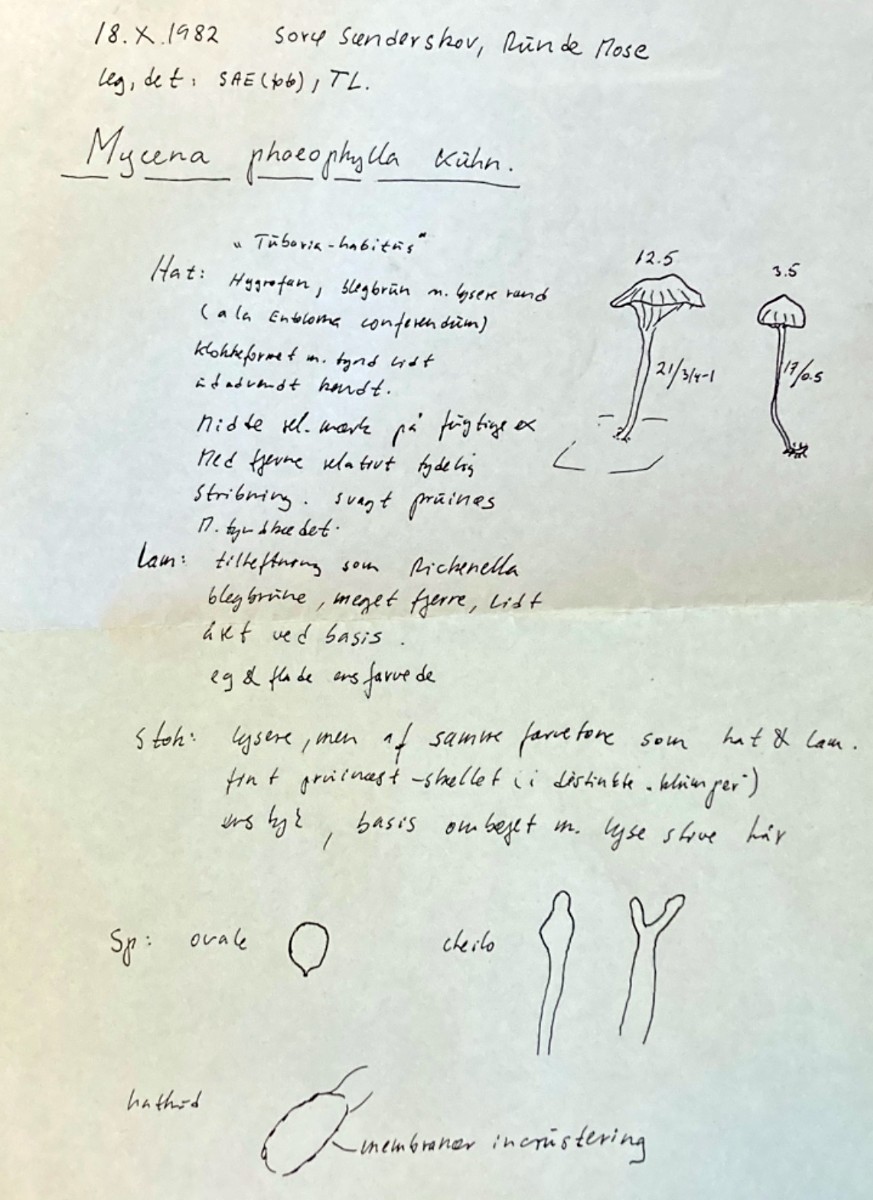 18.X.1982 Sorø Sønderskov, Runde Mose
leg, det: SAE(fob), TL.
Mycena phaeophylla Kühn.
"Tubaria-habitus"
12.5
3.5
Hat: Hygrofan, blegbrun m. lysere rand
(a la Entoloma conferendum)
klokkeformet m. tynd lidt
udadvendt kandt.
21/3/4-1
17/0.5
Midte rel. mørk på fugtige ex
Med fjerne relativt tydelig
Stribning. svagt pruinøs
M. tyndkødet.
Lam: tilheftning som Rickenella
blegbrune, meget fjerre, lidt
året ved basis.
eg & flade ensfarvede
Stok: lysere, men af samme farvetone som hat & lam.
fint pruinøst-skællet (i distinkte "klumper")
ens tyk, basis ombøjet m. lyse stive hår
Sp: ovale
cheilo
hathud
membranær incrustering